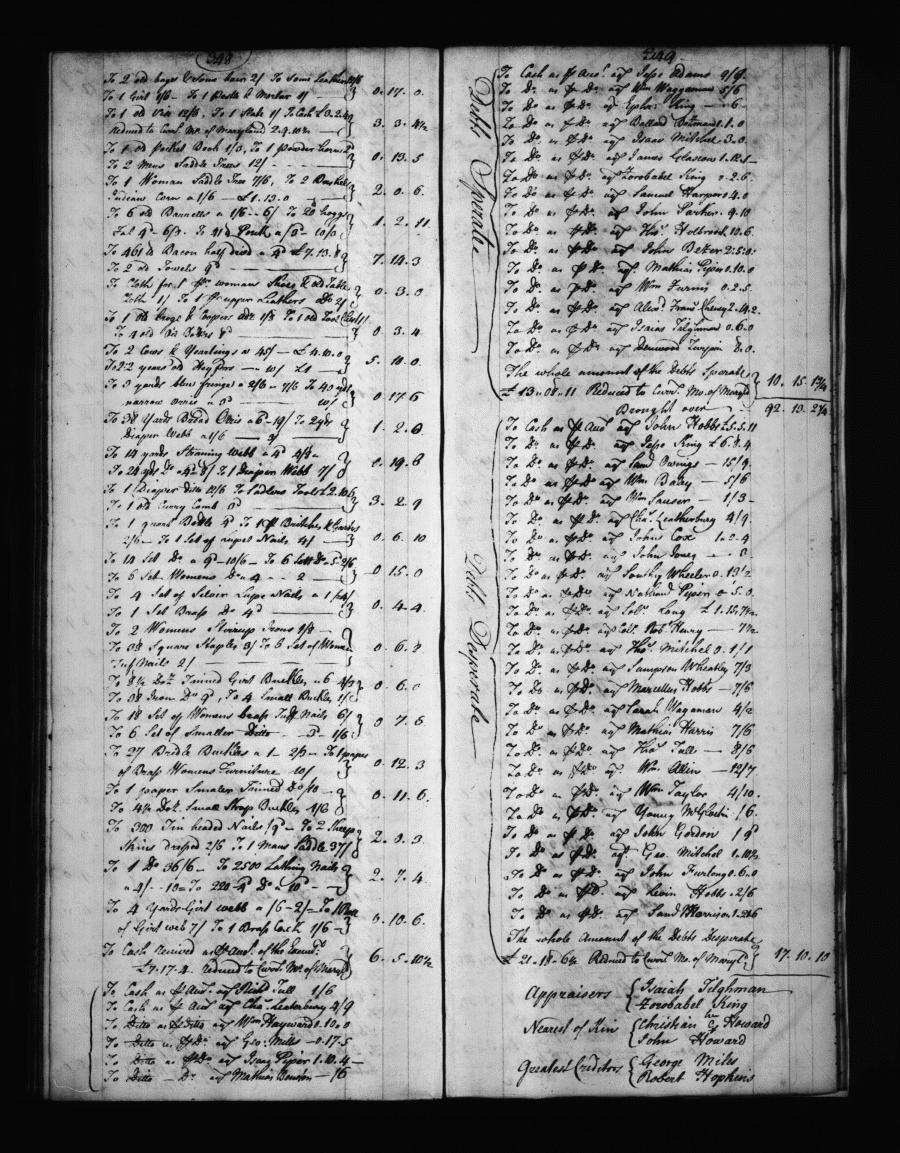 348
To 2 old bags & some hair 2/ To some Leather
To 1 Girt 1/6 - To 1 Pestle & Mortar 1/ 0. 17. 0.
To 1 old Vise 12/8. To 1 Slate 1/ To Cash £3.2.4
reduced to Curr.t Mo. of Maryland 2.9.10½ 3. 3. 4½
To 1 old Pocket Book 1/3, To 1 Powder horn
To 2 Mens Saddle Trees 12/ 0. 13. 5
To 1 Woman Saddle Tree 7/6, To 2 Bushels
Indean Corn a 1/6 - £1.13.0 2. 0. 6.
To 6 old Barrells a 1/6 - 6/ To 20 hoggs
Fat 4d 6/8. To 41 lb Pork a 3d - 10/3 1. 2. 11
To 461 lb Bacon half dried a 4d £7.13.8
To 2 old Towels 9d 7. 14. 3
To Cloth for 1 pr. woman Shoes & old Table
Cloth 1/ To 1 pr upper Leathers do 2/ 0. 3. 0
To 1 old Gouge & Compass do 1/8 To 1 old Tool Chest 1/
To 4 old Bitts 8d 0. 3. 4
To 2 Cows & Yearlings a 45/ - £4.10.0
To 2 2 years old Heyfers - 10/ £1 5. 10. 0
To 3 yards blew fringe a 2/6 - 7/6 To 40 yds
narrow Orris a 3d 10/ 0. 17. 6
To 38 Yards Broad Orris a 6 - 19/ To 2 yds
Diaper Webb a 1/6 3/ 1. 2. 0
To 14 yards Straining webb a 4d 4/8
To 24 yds Do a 4d 8/ To 1 Diaper Webb 7/ 0. 19. 8
To 1 Diaper ditto 12/6 To Sadlers Tools £2.10.6
To 1 old Curry Comb 9d 3. 2. 9
To 1 quart Bottle 4d To 1 pr Britches & Garters
2/6 - To 1 Set of nipel Nails 4/ 0. 6. 10
To 14 Set Do a 9d - 10/6 - To 6 Sett Do - 5 - 2/6
To 6 Set Womens Do a 4 - 2 0. 15. 0
To 4 Set of Silver Lupe Nails a 1/
To 1 Set Brass Do 4d 0. 4. 4.
To 2 Womens Stirrup Irons 1/8
To 38 Square Staples 3/ To 6 Set of Women 0. 6. 8
Tuf Nails 2/
To 8½ Doz. Tinned Girt Buckles a 6 4/3
To 38 Iron Do 9d, To 4 Small Buckles 1/ 0. 6. 0
To 18 Set of Womens brass Tuff Nails 6/
To 6 Set of Smaller Ditto - 3d - 1/6 0 7. 6
To 27 Bridle Buckles a 1 - 2/3 - To 1 paper
of Brass Womens Furniture 10/ 0. 12. 3
To 1 paper Smaler Tinned Do 10
To 4½ Doz. Small Strap Buckles 1/6 0. 11. 6.
To 300 Tin headed Nails 19d - To 2 Sheep
Skins dressed 2/6 To 1 Mans Saddle 37/ 2. 3. 3.
To 1 Do 36/6 - To 2500 Lathing Nails
a 4/ - 10 - To 220 4d Do a 10d 2. 7. 4
To 4 Yards Girt webb a /6 - 2/ To
of Girt web 7/ To 1 Brass Cock 1/6 0. 10. 6.
To Cash received as pr Acct. of the Execut.r
£7.17.4. reduced to Curr.t Mo. of Maryl.d 6. 5. 10½
To Cash as pr Acct. agst Tull 1/6
To Cash as pr Acct agst Chas Leatherbury 4/9
To Ditto as pr Ditto agst Wm Hayward 0.10.0
To Ditto as pr Do agst Geo: Mills - 0.17.5
To Ditto as pr Do agst Isaac Piper 1.10.4
To Ditto - Do agst Mathias Benston - 16
349
Debts Sperate
To Cash as pr Acct agst Jesse Adams 9/9.
To Do. as pr Do agst Wm Waggaman 5/6
To Do. as pr Do. agst Ephm. King - 6.
To Do. as pr Do. agst Ballard Bozman 1.0
To Do. as pr Do. agst Isaac Mitchel 3.0
To Do. as pr Do. agst James Glascow
To Do. as pr Do. agst Zorobabel King 0.2.6.
To Do as pr Do. agst Samuel Harper 0.4.0
To Do. as pr Do. agst John Parker. 9.10
To Do. as pr Do. agst Thos. Holbrook 10.6.
To Do. as pr Do. agst John Betzer 2:5:0:
To Do. as pr Do. agst Mathias Piper 0.10.0
To Do. as pr Do. agst Wm Furnis 0.2.5.
To Do. as pr Do. agst Alexr. Franc. Cheney 2.14.2.
To Do. as pr Do. agst Isaias Tilghman 0.6.0
To Do. as pr Do. agst Denwood Turpin 8.0.
The whole amount of the Debts Sperate
£13..08..11 Reduced to Curr.t Mo. of Maryld 10. 15. 1¾
Brought over 92. 13. 2¼
Debts Desperate
To Cash as pr Acct agst John Hobbs £5.5.11
To Do. as pr Do. agst Jesse King £6.8.4
To Do. as pr Do. agst Saml Owings - 15/9.
To Do as pr Do. agst Wm Baley - 5/6
To Do as pr Do. agst Wm Sauser - 1/3.
To Do. as pr Do. agst Chas. Leatherbury 4/9.
To Do. as pr Do. agst Johns Cox 1.2.4
To Do. as pr Do. agst John Jones - 8
To Do. as pr Do. agst Southy Wheeler 0.13.2
To Do. as pr Do. agst Nathaniel Piper 0.5.0.
To Do. as pr Do. agst Solo. Long £1.15.7½
To Do. as pr Do. agst Col. Robt. Henry - 7½
To Do. as pr Do. agst Thos. Mitchel 0.1/1
To Do. as pr Do. agst Sampson Wheatley 7/3
To Do. as pr Do. agst Marcellus Hobbs - 7/6
To Do. as pr Do. agst Sarah Wagaman 4/2
To Do. as pr Do. agst Mathias Harris 7/6
To Do. as pr Do. agst Thos. Tull - 8/6
To Do. as pr Do. agst. Wm. Allin - 12/7
To Do. as pr Do. agst Wm Taylor 4/10.
To Do. as pr Do. agst Young McGlostin 1/6.
To Do as pr Do. agst John Gordon 1 9d
To Do as pr Do. agst Geo. Mitchel 1.10½
To Do. as pr Do. agst John Furlong 0.6.0
To Do. as pr Do agst Levin Hobbs 2/6
To Do. as pr Do. agst Saml Harrison
The whole Amount of the Debts Desperate
£21.18.6½ Reduced to Curr.t Mo. of Maryld. 17. 10. 10
Appraisers { Isaiah Tilghman
Zorobabel King
Nearest of Kin { Christian her Howard
John Howard
Greatest Creditors { George Miles
Robert Hopkins